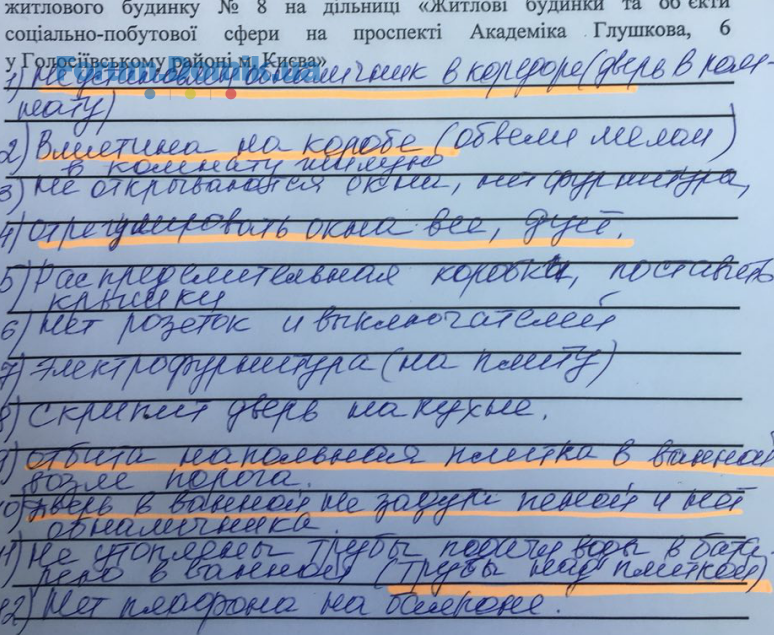 житлового будинку № 8 на дільниці «Житлові будинки та об'єкти
соціально-побутової сфери на проспекті Академіка Глушкова, 6
у Голосіївському районі м. Києва»
1) Не установлен наличник в коредоре (дверь в ком-
нату)
2) Вмятина на коробе (обвели мелом)
в комнату жилую
3) не открываются окна, нет фурнитура,
4) отрегулировать окна все, дует.
5) Распределительная коробка, поставить
крышки
6) Нет розеток и выключателей
7) Электрофурнитура (на плиту)
8) Скрипит дверь на кухне.
9) отбита напольная плитка в ванной
возле порога.
10) дверь в ванной не задута пеной и нет
обналичника.
11) Не утоплены трубы подачи воды в бата-
рею в ванной (трубы над плиткой)
12) Нет плафона на балконе.